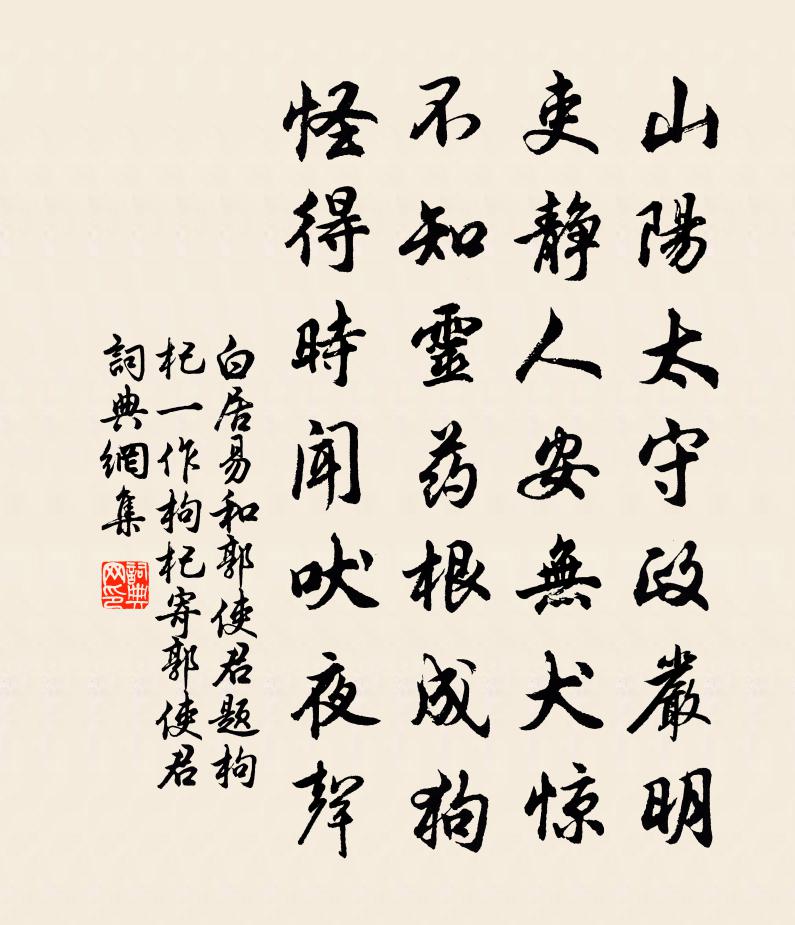 山陽太守政嚴明
吏静人安無犬惊
不知靈药根成狗
怪得時聞吠夜聲
白居易和郭使君题枸
杞一作枸杞寄郭使君
詞典網集
詞典
网印